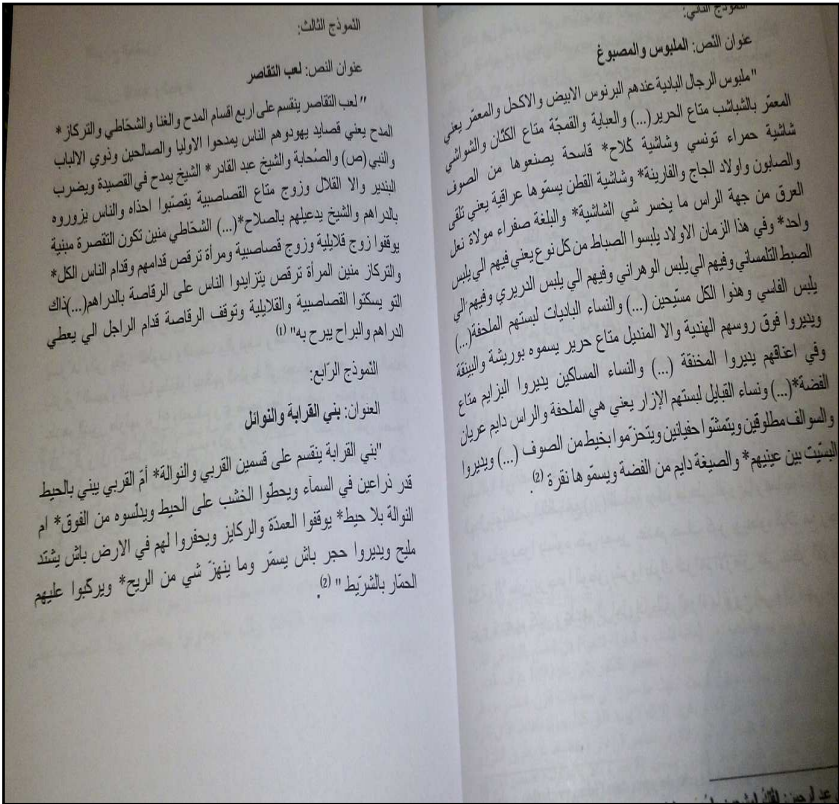 النموذج الثاني:
عنوان النص: الملبوس والمصبوغ
"ملبوس الرجال البادية عندهم البرنوس الابيض والاكحل والمعمّر يعني
المعمّر بالشباشب متاع الحرير(...) والعباية والقمجّة متاع الكتّان والشواشي
شاشية حمراء تونسي وشاشية كُلاح* قاسحة يصنعوها من الصوف
والصابون واولاد الجاج والفارينة* وشاشية القطن يسمّوها عراقية يعني تلقى
العرق من جهة الراس ما يخسر شي الشاشية* والبلغة صفراء مولاة نعل
واحد* وفي هذا الزمان الاولاد يلبسوا الصباط من كل نوع يعني فيهم الي يلبس
الصبط التلمساني وفيهم الي يلبس الوهراني وفيهم الي يلبس الدريري وفيهم الي
يلبس الفاسي وهذوا الكل مستّيحين (...) والنساء الباديات لبستهم الملحفة(...)
ويديروا فوق روسهم الهندية والا المنديل متاع حرير يسموه بوريشة والبنيقة
وفي اعناقهم يديروا المخنقة (...) والنساء المساكين يديروا البزايم متاع
الفضة*(...) ونساء القبايل لبستهم الإزار يعني هي الملحفة والراس دايم عريان
والسوالف مطلوقين ويتمشّوا حفيانين ويتحزّموا بخيط من الصوف (...) ويديروا
البسّيت بين عينيهم* والصيغة دايم من الفضة ويسمّوها نقرة (2).
النموذج الثالث:
عنوان النص: لعب التقاصر
"لعب التقاصر ينقسم على اربع اقسام المدح والغنا والشخاطي والتركاز*
المدح يعني قصايد يهودوهم الناس يمدحوا الاوليا والصالحين وذوي الالباب
والنبي (ص) والصُحابة والشيخ عبد القادر* الشيخ يمدح في القصيدة ويضرب
البندير والا القلال وزوج متاع القصاصبية يقصّبوا احذاه والناس يزوروه
بالدراهم والشيخ يدعيلهم بالصلاح*(...) الشخّاطي منين تكون التقصرة مبنية
يوقفوا زوج قلايلية وزوج قصاصبية ومرأة ترقص قدامهم وقدام الناس الكل*
والتركاز منين المرأة ترقص يتزايدوا الناس على الرقاصة بالدراهم(...)ذاك
التو يسكتوا القصاصبية والقلايلية وتوقف الرقاصة قدام الراجل الي يعطي
الدراهم والبراح يبرح به" (1)
النموذج الرّابع:
العنوان: بني القرابة والنوائل
"بني القرابة ينقسم على قسمين القربي والنوالة* أمّ القربي يبني بالحيط
قدر ذراعين في السمآء ويحطّوا الخشب على الحيط ويدلسوه من الفوق* ام
النوالة بلا حيط* يوقفوا العمدّة والركايز ويحفروا لهم في الارض باش يشتد
مليح ويديروا حجر باش يسمّر وما ينهزّ شي من الريح* ويركّبوا عليهم
الحمّار بالشرّيط" (2).